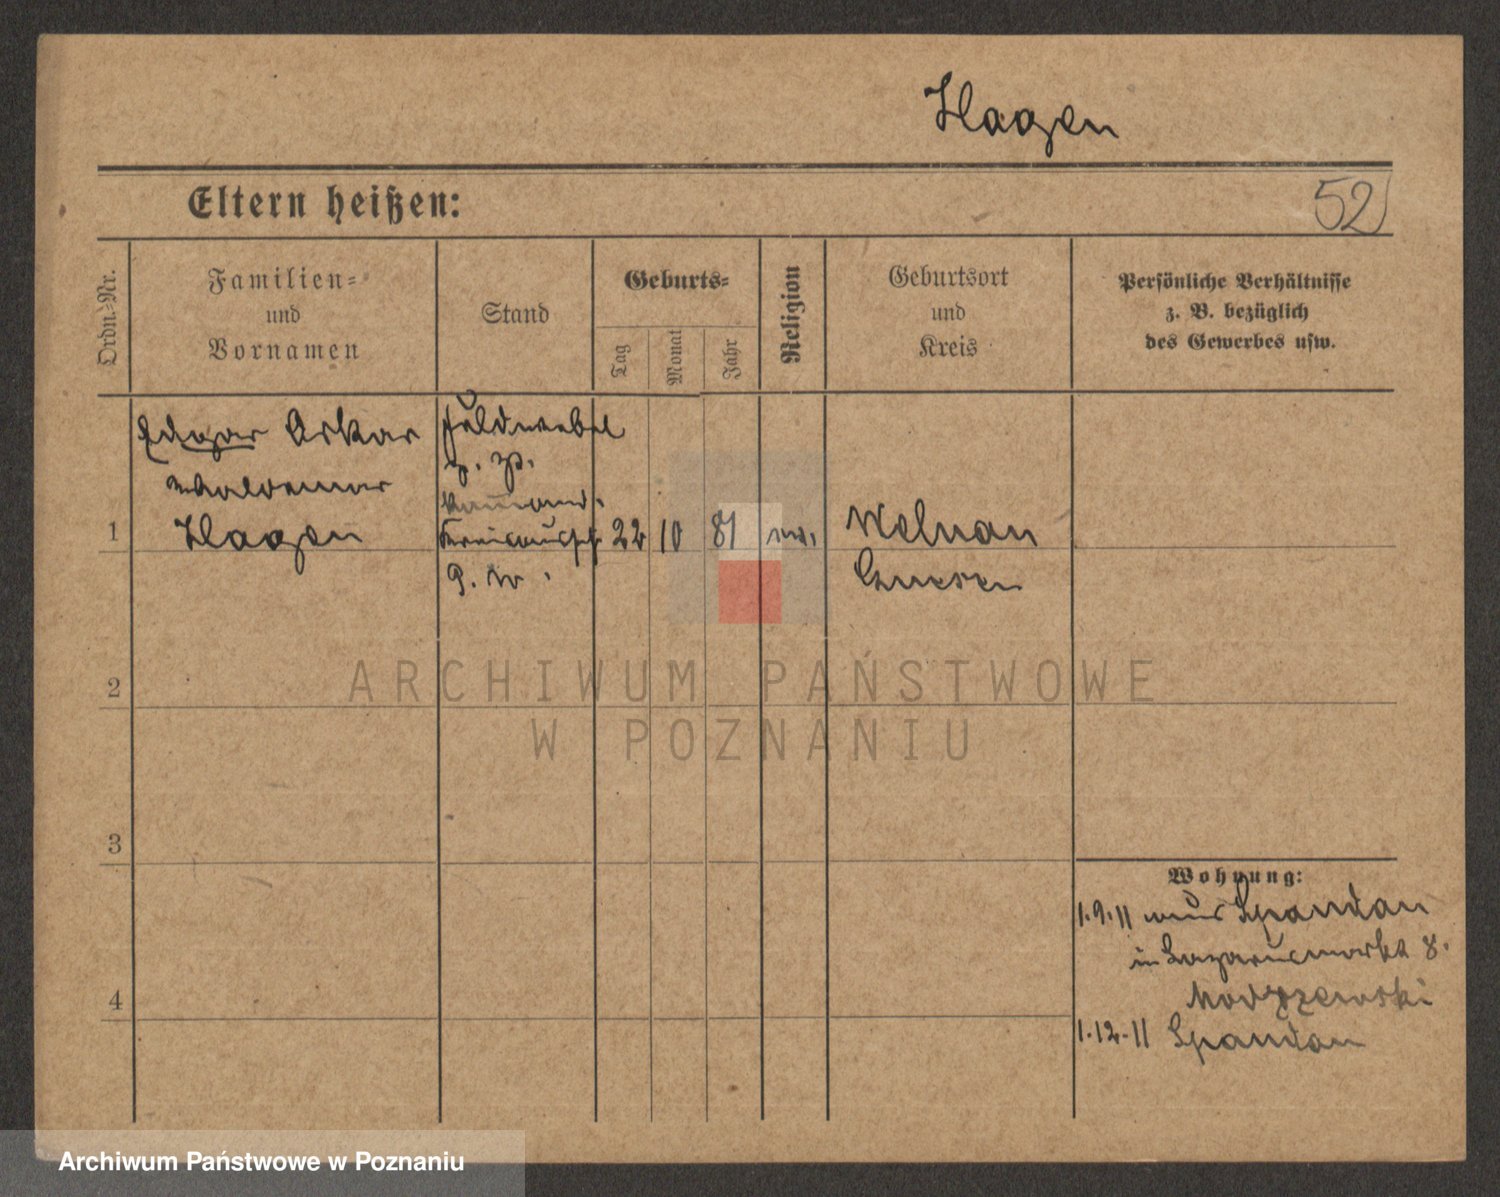 Hagen
Eltern heißen:
52
Ordn.-Nr.
Familien-
und
Vornamen
Stand
Geburts-
Tag
Monat
Jahr
Religion
Geburtsort
und
Kreis
Persönliche Verhältnisse
z. B. bezüglich
des Gewerbes usw.
1
Edgar Oskar
Waldemar
Hagen
Feldwebel
z. Zt.
22
10
81
Welnau
Gnesen
2
3
4
Wohnung:
1.9.11 aus Spandau
in Lazarusmarkt 8.
1.12.11 Spandau
ARCHIWUM PAŃSTWOWE
W POZNANIU
Archiwum Państwowe w Poznaniu